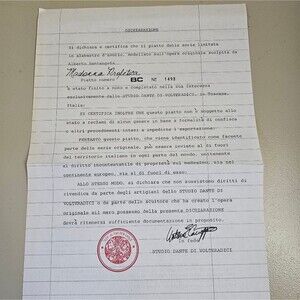 DICHIARAZIONE
Si dichiara e certifica che il piatto della serie limitata
in alabastro d'avorio, modellato dall'opera originale scolpita da
Alberto Santangelo
Madonna
Piatto numero BC Nº 1493
è stato finito a mano e completato nella sua interezza
esclusivamente dallo STUDIO DANTE DI VOLTERADICI, in Toscana,
Italia.
SI CERTIFICA INOLTRE CHE questo piatto non è soggetto allo
stato a reclami di alcun genere in base a formalità di confisca
o altri procedimenti intesi a impedirne l'esportazione.
PERTANTO questo piatto, che viene identificato come facente
parte della serie originale, può essere inviato al di fuori
del territorio italiano in ogni parte del mondo, unitamente
al diritto incontestabile di proprietà sul medesimo, sia nel
continente europeo, sia al di fuori di esso.
ALLO STESSO MODO, si dichiara che non sussistono diritti di
rivendica da parte degli artigiani dello STUDIO DANTE DI
VOLTERADICI o da parte dello scultore che ha creato l'opera
originale e il mero possesso della presente DICHIARAZIONE
dovrà ritenersi sufficiente documentazione in proposito.
in fede
STUDIO DANTE DI VOLTERADICI